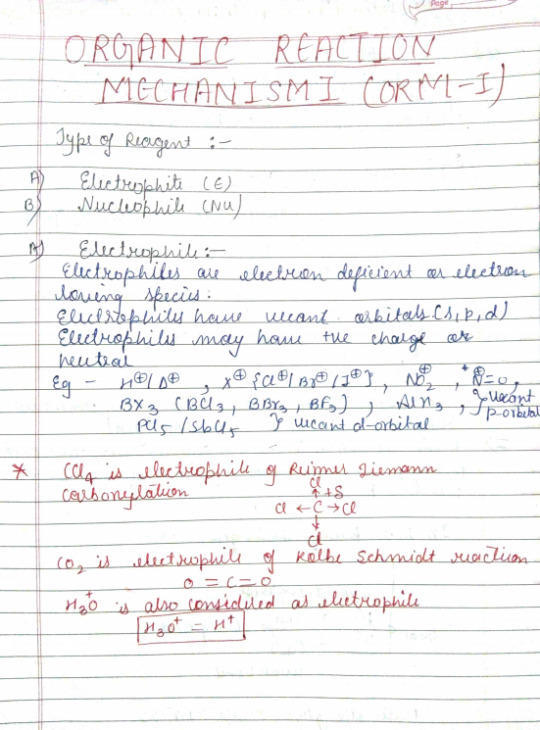 Page
ORGANIC REACTION
MECHANISM I (ORM-I)
Type of Reagent :-
A) Electrophile (E)
B) Nucleophile (Nu)
A) Electrophile :-
Electrophiles are electron deficient or electron
loving species :
Electrophiles have vacant orbitals (s, p, d)
Electrophiles may have +ve charge or
neutral
Eg - H⊕/D⊕ , X⊕ {Cl⊕/Br⊕/I⊕} , NO₂⊕ , N⊕=O ,
BX₃ (BCl₃, BBr₃, BF₃) , AlX₃ , } vacant p-orbital
PCl₅ / SbCl₅ } vacant d-orbital
* CCl₄ is electrophile of Reimer Tiemann
Carboxylation
Cl
↑ +δ
Cl ← C → Cl
↓
Cl
CO₂ is electrophile of Kolbe Schmidt reaction
O = C = O
H₃O⁺ is also considered as electrophile
H₃O⁺ = H⁺